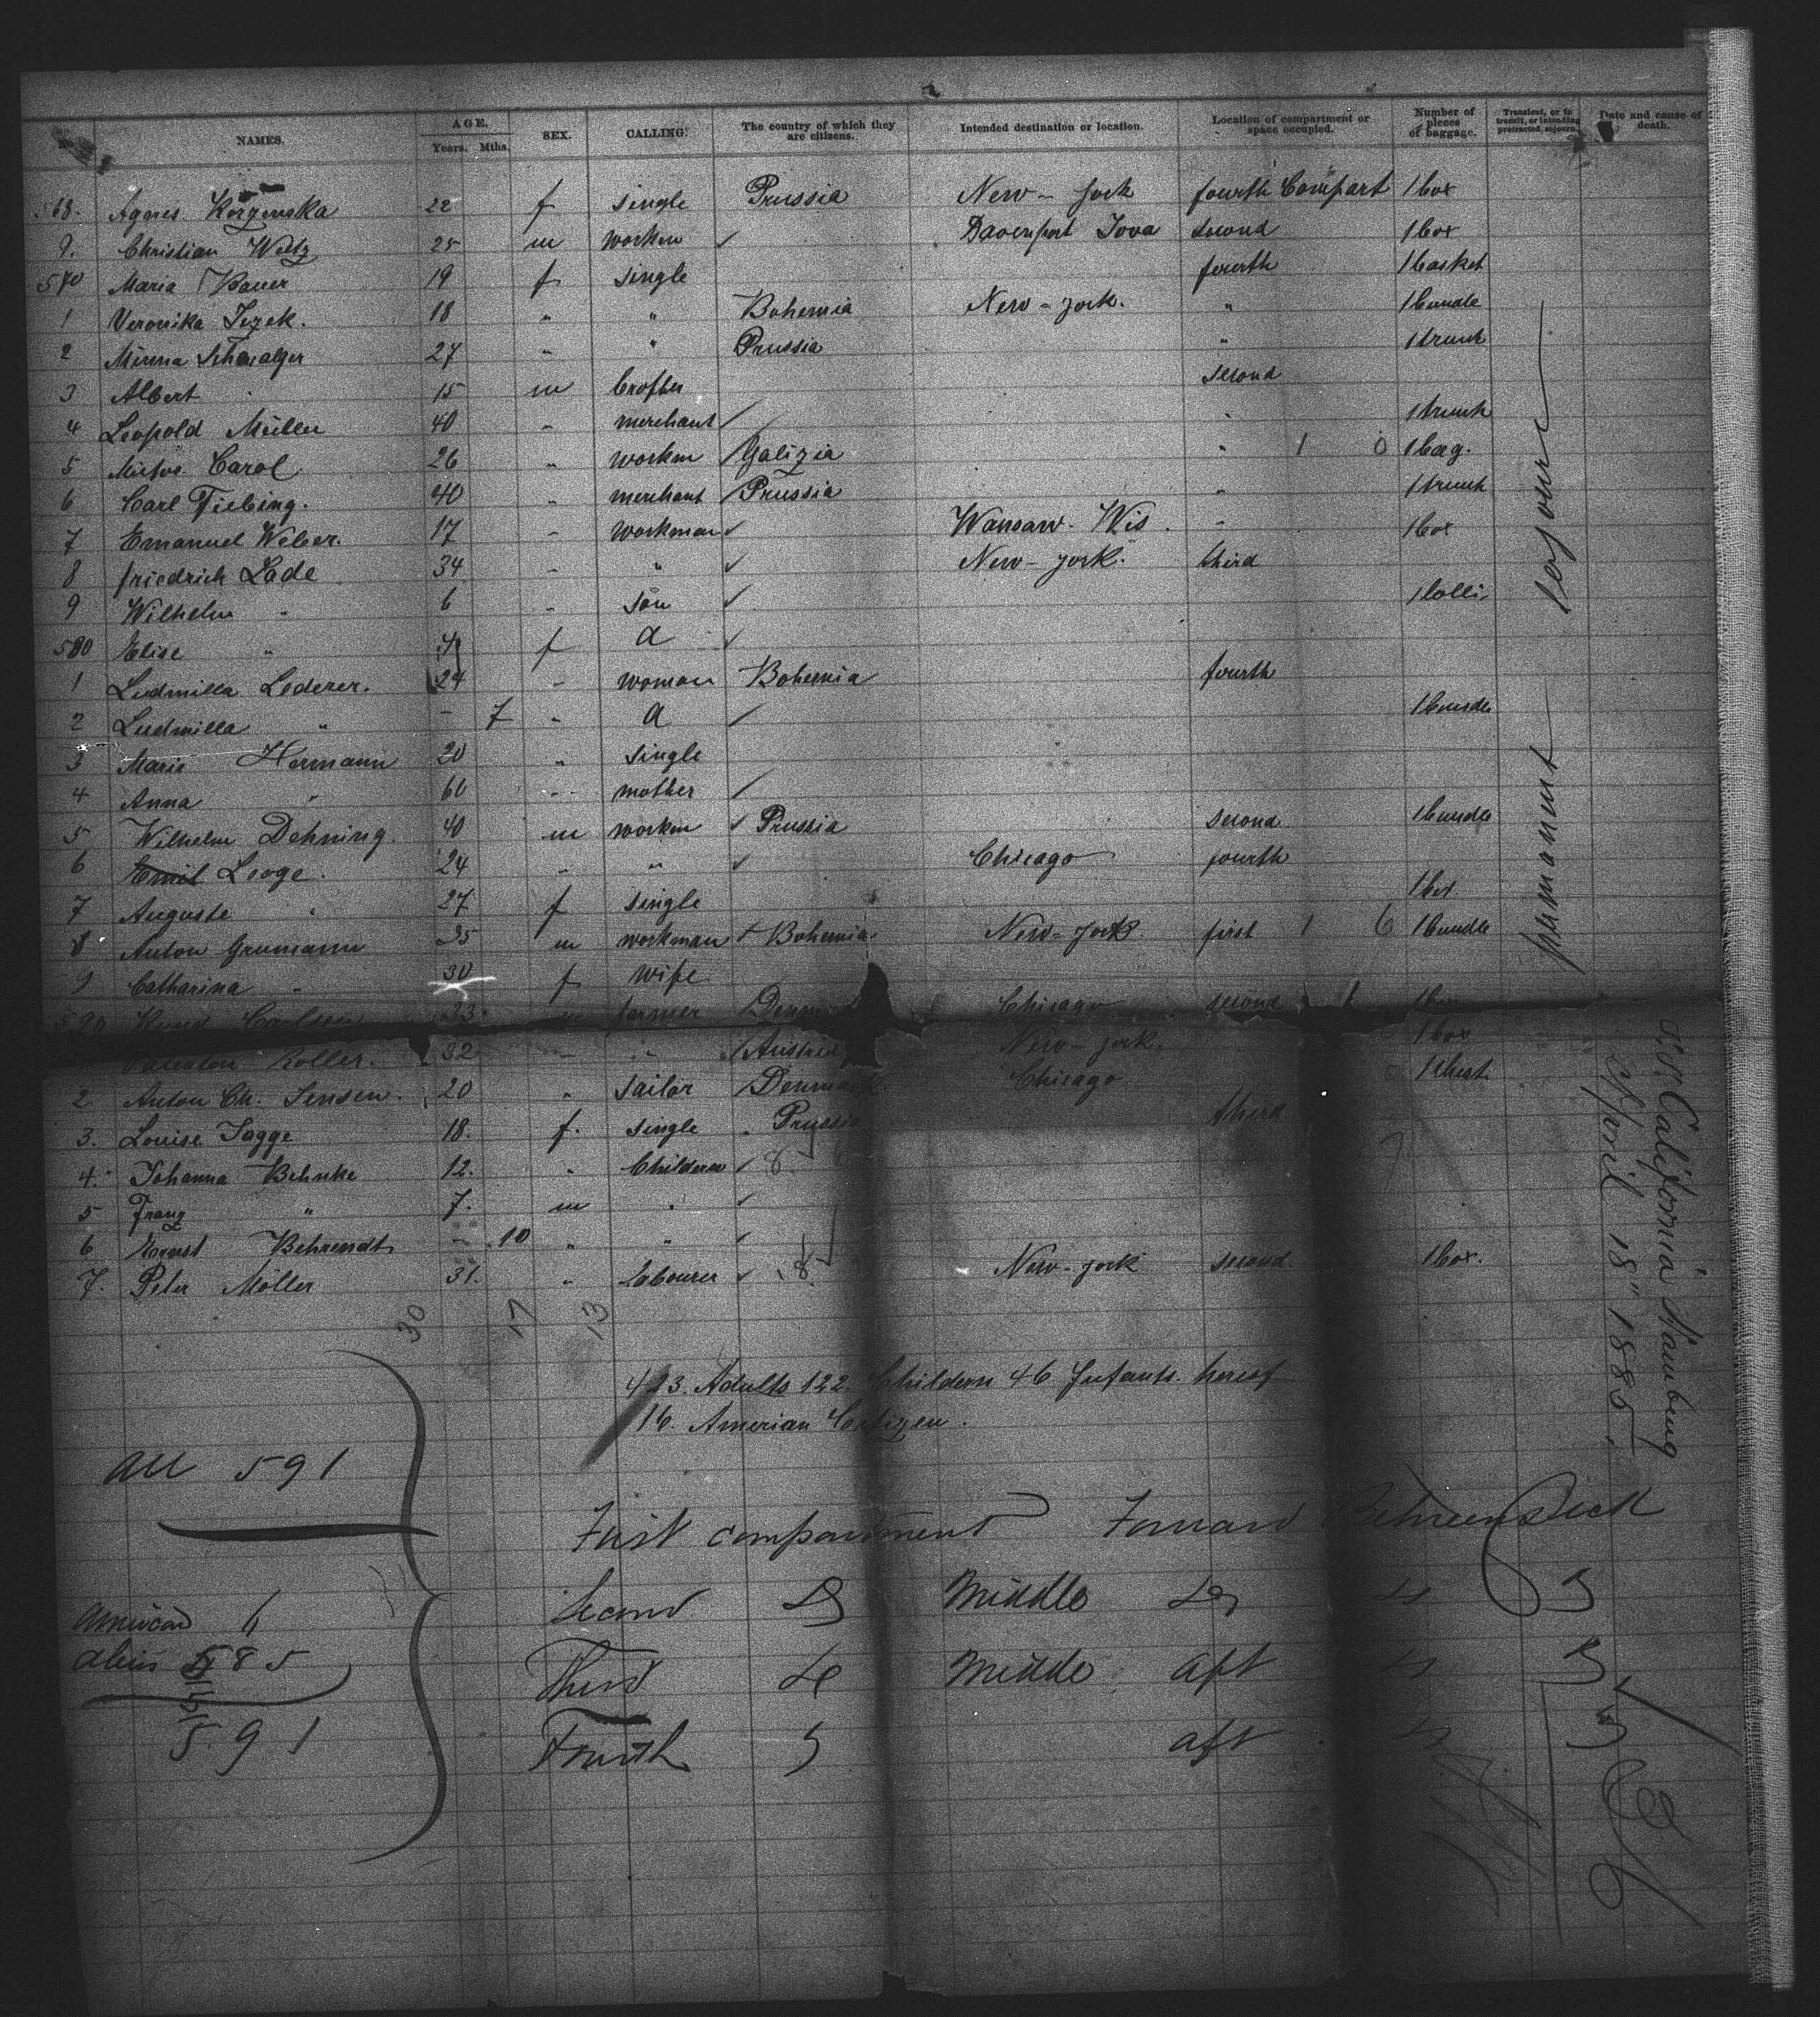 NAMES. AGE. Years. Mths. SEX. CALLING. The country of which they are citizens. Intended destination or location. Location of compartment or space occupied. Number of pieces of baggage. Transient, or in transit, or intending protracted sojourn. Date and cause of death.
568. Agnes 22 f single Prussia New-York fourth Compart 1 box
9. Christian 25 m workm ✓ Davenport Iova second 1 box
570 Maria Bauer 19 f single fourth 1 basket
1 Veronika Jezek. 18 " " Bohemia New-york. " 1 bundle
2 Minna 27 " " Prussia " 1 trunk
3 Albert 15 m second
4 Leopold Müller 40 " merchant ✓ " 1 trunk
5 Carol 26 " workm Galizia " 1 0 1 bag.
6 Carl Fiebing. 40 " merchant Prussia " 1 trunk
7 Emanuel Weber. 17 " workman ✓ Wausaw. Wis. " 1 box
8 friedrich Lade 34 " " ✓ New-york. third
9 Wilhelm " 6 " son ✓ 1 colli
580 Elise " 4 f d ✓
1 Ludmilla Lederer. 24 " woman Bohemia fourth
2 Ludmilla " - 7 " d ✓ 1 bundle
3 Marie Hermann 20 " single
4 Anna " 60 " mother ✓
5 Wilhelm Dehning. 40 m workm ✓ Prussia second 1 bundle
6 Emil Leoge. 24 " " ✓ Chicago fourth
7 Auguste " 27 f single 1 box
8 Anton Grumann 35 m workman Bohemia. New-york first 1 6 1 bundle
9 Catharina " 30 f wife
590 Carlsen 33 m farmer Chicago second 1 1 box
Koller. 32 " " Austria New-york. 1 box
2 Anton Ch. Jensen. 20 " sailor Denmark. Chicago 1 chest
3. Louise Jagge 18. f. single Prussia third
4. Johanna Behnke 12. " Childern ✓ 8
5 Franz " 7. m " ✓
6 Behrendt - 10 " " ✓
7. Peter Möller 31. " Labourer ✓ 8 New-york second. 1 box.
permanent sejour
S.S. California Hamburg
April 18" 1885.
30 17 13
423. Adults 122 Childern 46 Infants. hereof
16. Amerian
All 591
First compartment Forward Between Deck
Second Do Middle Do
Third Do Middle aft
Fourth aft
American 6
Alien 585
591